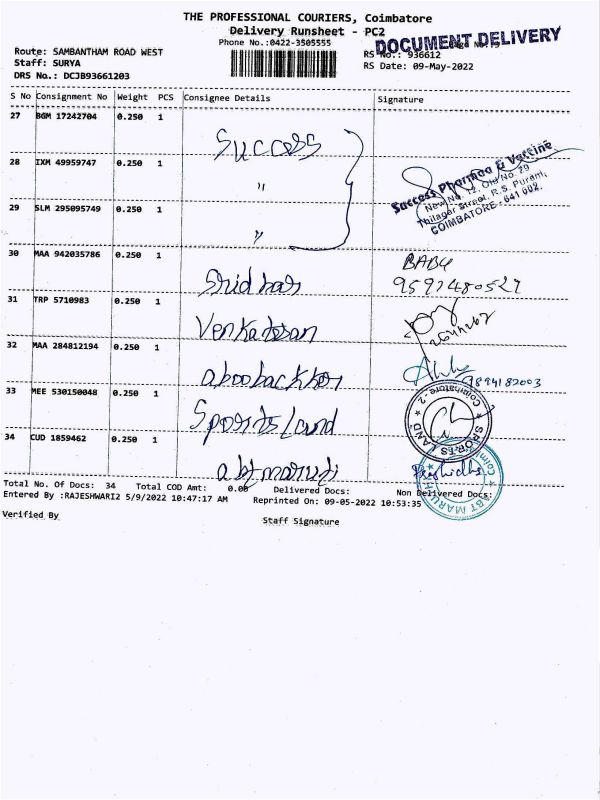 THE PROFESSIONAL COURIERS, Coimbatore
Delivery Runsheet - PC2
Phone No.:0422-3505555
DOCUMENT DELIVERY
Route: SAMBANTHAM ROAD WEST
RS No.: 936612
Staff: SURYA
RS Date: 09-May-2022
DRS No.: DCJB93661203
S No Consignment No Weight PCS Consignee Details Signature
27 BGM 17242704 0.250 1 Success
28 IXM 49959747 0.250 1 "
Success Pharmaa & Vaccine
New No. 12, Old No. 29
Thilagar Street, R.S. Puram,
COIMBATORE - 641 002.
29 SLM 295095749 0.250 1 "
30 MAA 942035786 0.250 1 Sridhar BABU
9597480527
31 TRP 5710983 0.250 1 Venkatesan
32 MAA 284812194 0.250 1 aboobackker 9894182003
33 MEE 530150048 0.250 1 Sports Land
SPORTS LAND Coimbatore-2
34 CUD 1859462 0.250 1 abt maruti
ABT MARUTHI
Total No. Of Docs: 34 Total COD Amt: 0.00 Delivered Docs: Non Delivered Docs:
Entered By :RAJESHWARI2 5/9/2022 10:47:17 AM Reprinted On: 09-05-2022 10:53:35
Verified By
Staff Signature